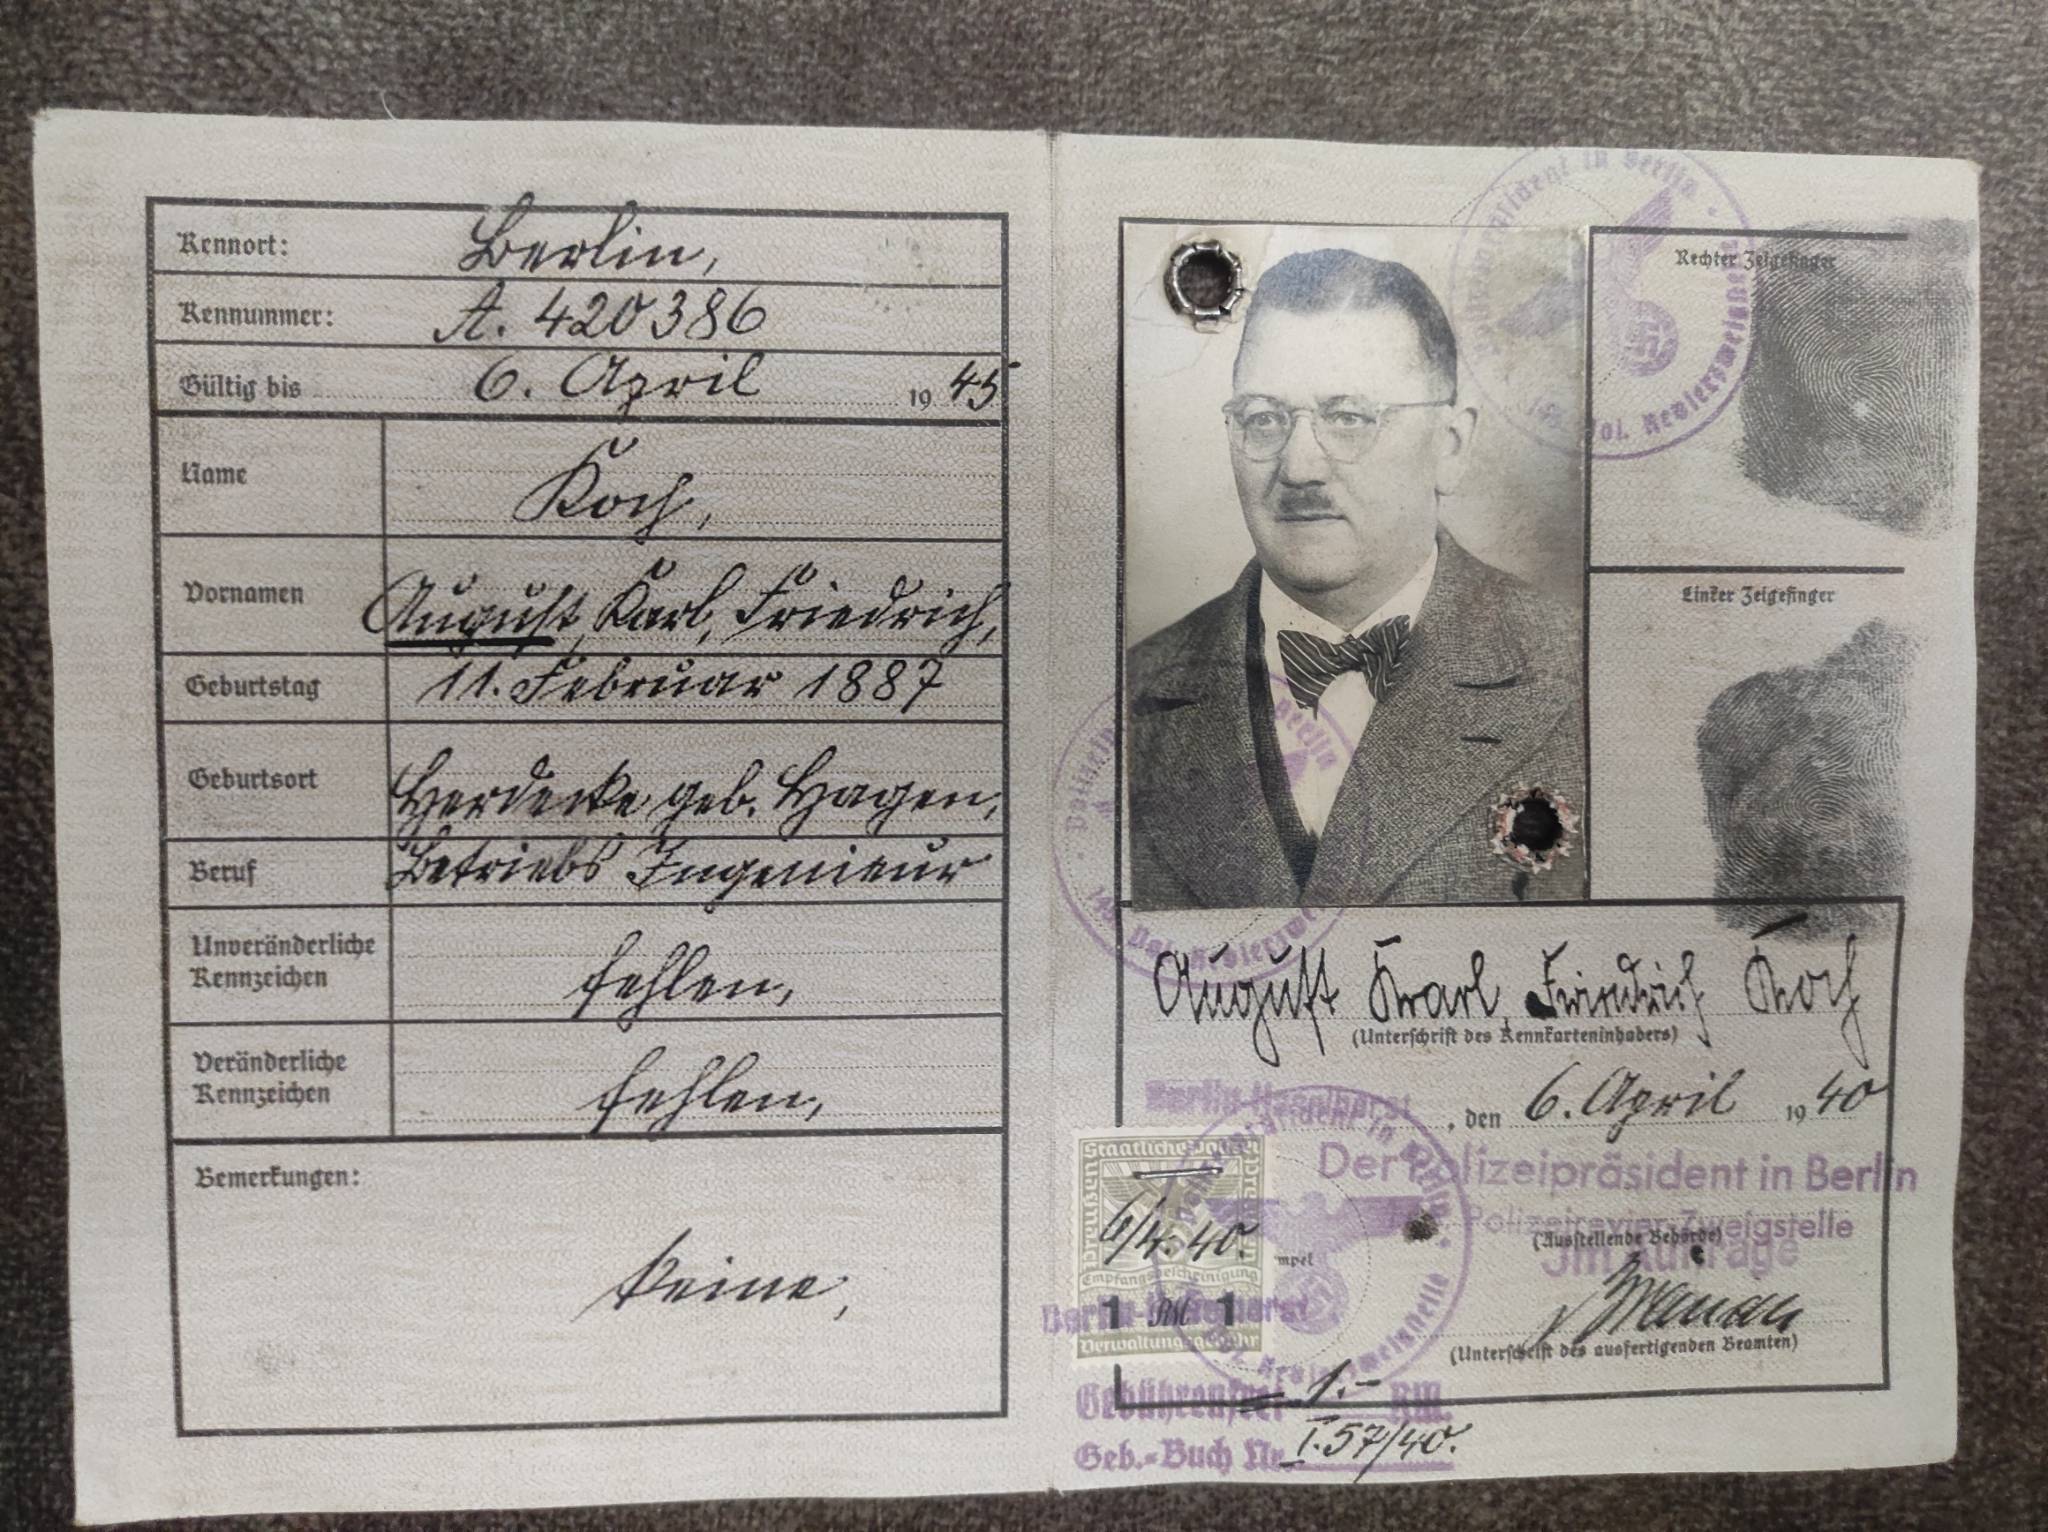 Kennort: Berlin,
Kennummer: A. 420386
Gültig bis 6. April 1945
Name Koch,
Vornamen August, Karl, Friedrich,
Geburtstag 11. Februar 1887
Geburtsort Herdecke geb. Hagen,
Beruf Betriebs Ingenieur
Unveränderliche
Kennzeichen fehlen,
Veränderliche
Kennzeichen fehlen,
Bemerkungen:
keine,
Polizeipräsident in Berlin
Pol. Revierzweigstelle
Rechter Zeigefinger
Linker Zeigefinger
August Karl, Friedrich Koch
(Unterschrift des Kennkarteninhabers)
Berlin-Haselhorst, den 6. April 1940
Der Polizeipräsident in Berlin
Polizeirevier-Zweigstelle
(Ausstellende Behörde)
Im Auftrage
(Unterschrift des ausfertigenden Beamten)
Staatliche Polizei
Preussen
6/4. 40.
Empfangsbescheinigung
1 RM 1
Verwaltungsgebühr
Berlin-Haselhorst
Gebührenfrei 1.- RM.
Geb.-Buch Nr. I.57/40.